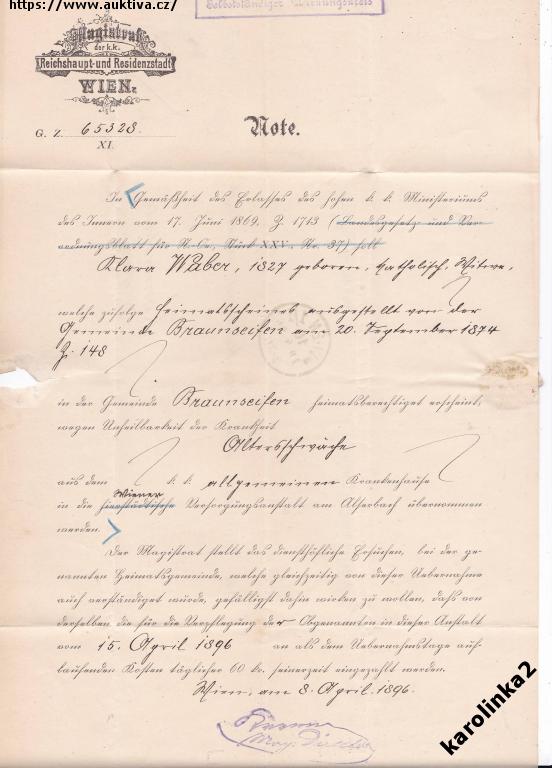 https://www.auktiva.cz/
Selbstständiger Wirkungskreis
Magistrat
der k.k.
Reichshaupt-und Residenzstadt
WIEN.
G. Z. 65328.
XI.
Note.
In Gemäßheit des Erlasses des hohen k. k. Ministeriums
des Innern vom 17. Juni 1869, Z. 1713 (Landesgesetz und Ver-
ordnungsblatt für N.-Oe., Stück XXV., Nr. 37) soll
Klara Waber, 1827 geboren, katholisch, Witwe,
welche zufolge Heimatscheines ausgestellt von der
Gemeinde Braunseifen am 20. September 1874
Z. 148
in der Gemeinde Braunseifen heimatsberechtiget erscheint,
wegen Unheilbarkeit der Krankheit
Altersschwäche
aus dem k. k. allgemeinen Krankenhause
Wiener
in die hierstädtische Versorgungsanstalt am Alserbach übernommen
werden.
Der Magistrat stellt das diensthöfliche Ersuchen, bei der ge-
nannten Heimatsgemeinde, welche gleichzeitig von dieser Uebernahme
auch verständiget wurde, gefälligst dahin wirken zu wollen, dass von
derselben die für die Verpflegung der Obgenannten in dieser Anstalt
vom 15. April 1896 an als dem Uebernahmstage auf-
laufenden Kosten täglicher 60 kr. seinerzeit eingezahlt werden.
Wien, am 8. April 1896.
karolinka2